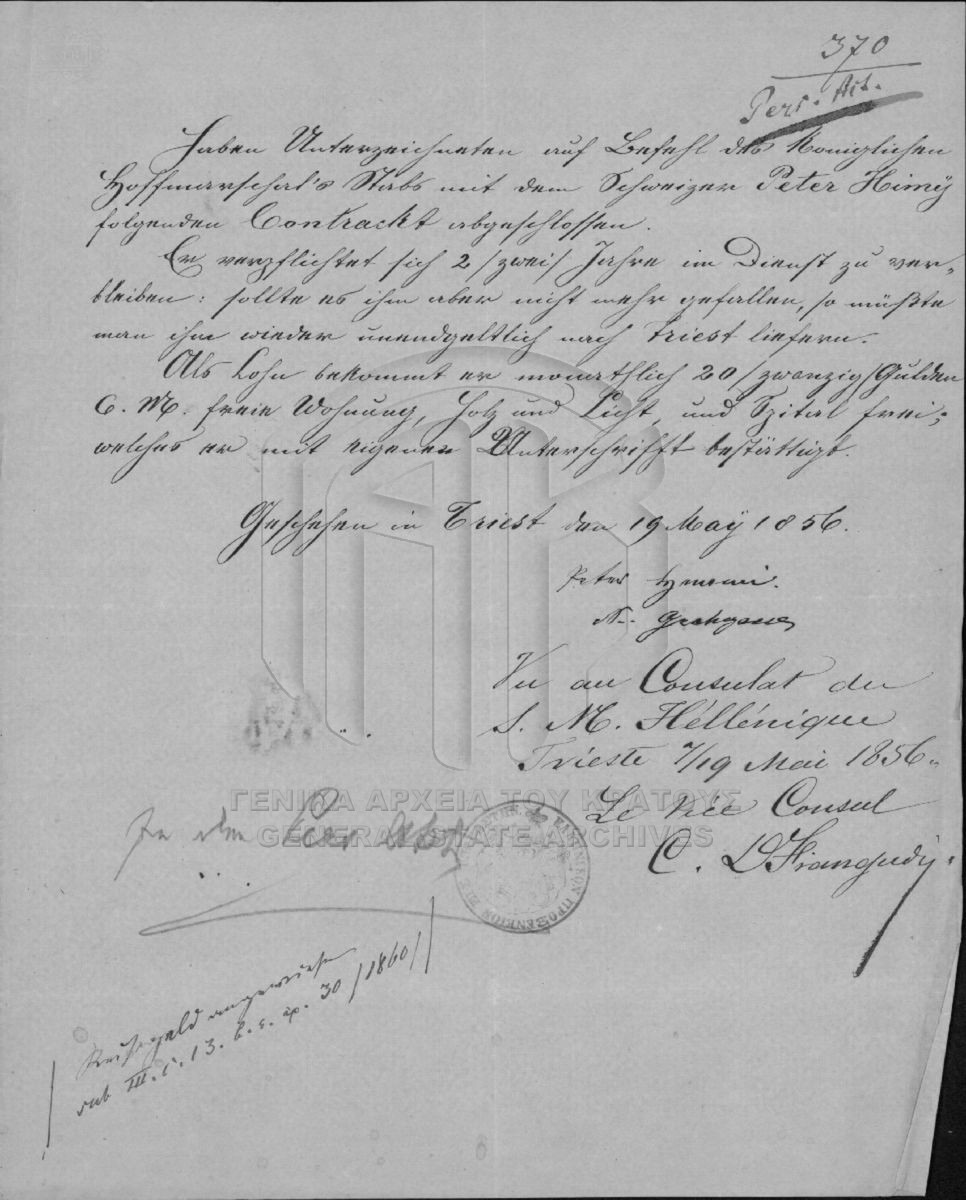 370
Pers. Act.
Haben Unterzeichneten auf Befehl des Königlichen
Hoffmarschal's Stabs mit dem Schweizer Peter Himÿ
folgenden Contrackt abgeschlossen.
Er verpflichtet sich 2 /zwei/ Jahre im Dienst zu ver-
bleiben: sollte es ihm aber nicht mehr gefallen, so müßte
man ihn wieder unendgeltlich nach Triest liefern.
Als Lohn bekommt er monathlich 20 /zwanzig/ Gulden
C. M. freie Wohnung, Holz und Licht, und Spital frei;
welches er mit eigener Unterschrifft bestättigt.
Geschehen in Triest den 19 Maÿ 1856.
Peter
Vu au Consulat de
S. M. Héllénique
Trieste 7/19 Mai 1856.
Le Vice Consul
C.
ΓΕΝΙΚΑ ΑΡΧΕΙΑ ΤΟΥ ΚΡΑΤΟΥΣ
GENERAL STATE ARCHIVES
Zu den
Reisegeld angewiesen
sub III. c. 13. 30 /1860/